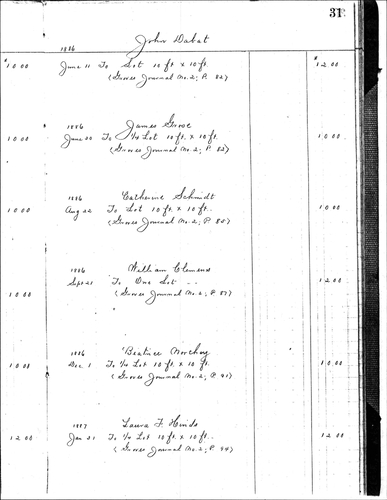 31
John Dabat
1886
$ 10 00 June 11 To Lot 10 ft x 10 ft. $ 12 00
(Graves Journal No. 2; P. 82)
1886 James Grose
10 00 June 20 To 1/4 Lot 10 ft. x 10 ft. 10 00
(Graves Journal No. 2; P. 82)
1886 Catherine Schmidt
10 00 Aug 22 To Lot 10 ft. x 10 ft. 10 00
(Graves Journal No. 2; P. 85)
1886 William Clemens
10 00 Sept 21 To One Lot 12 00
(Graves Journal No. 2; P. 87)
1886 Beatrice
10 00 Dec 1 To 1/4 Lot 10 ft. x 10 ft. 10 00
(Graves Journal No. 2; P. 91)
1887 Laura F. Hinds
12 00 Jan 21 To 1/4 Lot 10 ft. x 10 ft. 12 00
(Graves Journal No. 2; P. 94)